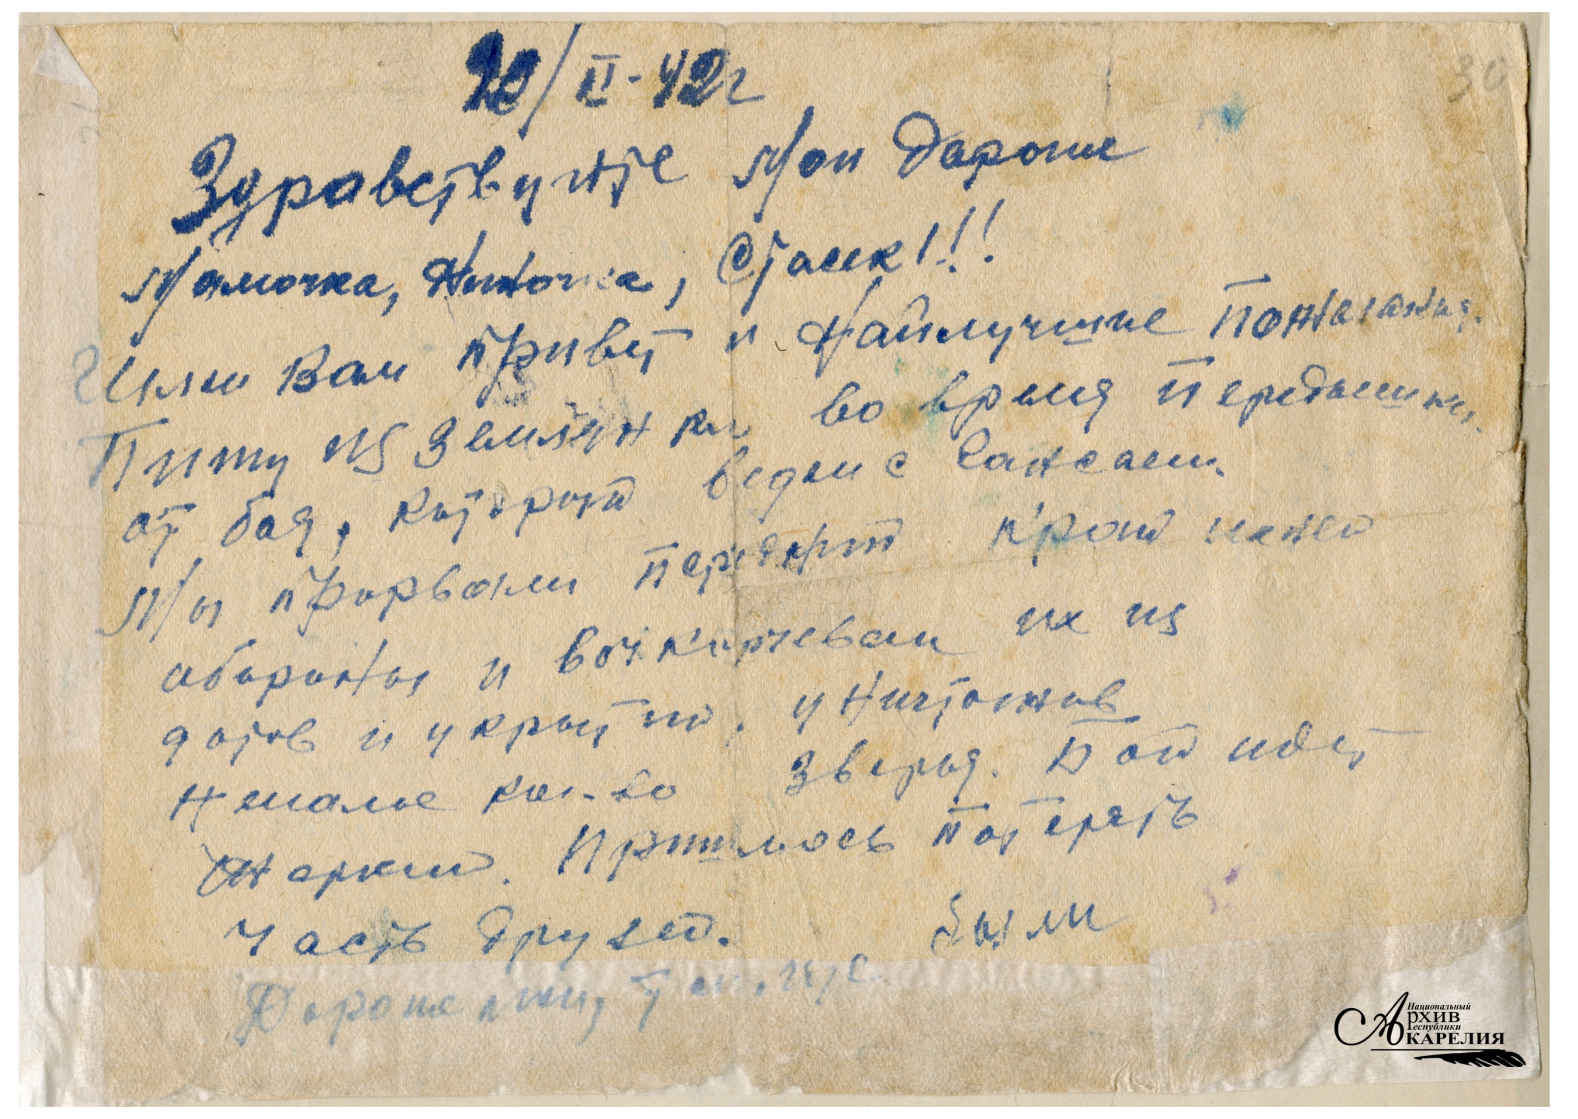 22/XI-42г
30
Здравствуйте Мои Дорогие
Мамочка, Ниночка, Стасик!!!
Шлю Вам привет и Найлучшие Пожелания.
Пишу из землянки во время Передышки
от боя, который ведем с
Мы прорвали передний край
обороны и выкорчевали их из
дотов и укрытий, уничтожив
немалое кол-во зверья. Бой идет
жаркий. Пришлось потерять
часть друзей. были
Дорогие мои,
Национальный
Архив
Республики
Карелия